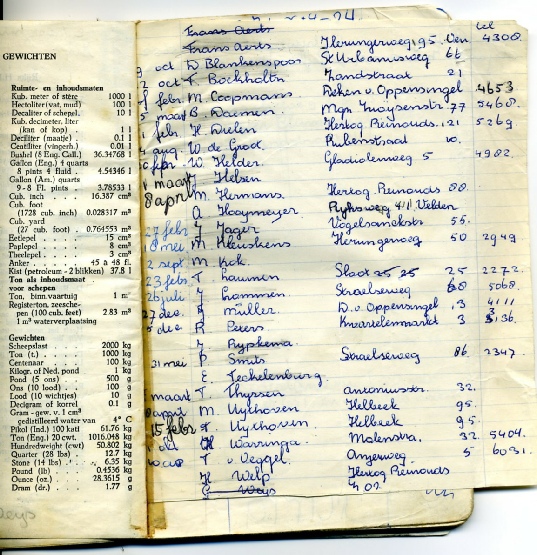 GEWICHTEN
Ruimte- en inhoudsmaten
Kub. meter of stère 1000 l
Hectoliter (vat, mud) 100 l
Decaliter of schepel . 10 l
Kub. decimeter, liter
(kan of kop) 1 l
Deciliter (maatje) . . 0.1 l
Centiliter (vingerh.) 0.01 l
Bushel (8 Eng. Gall.) 36.34768 l
Gallon (Eng.) 4 quarts
8 pints 4 fluid . 4.54346 l
Gallon (Am.) quarts
9-8 Fl. pints . . 3.78533 l
Cub. inch . . 16.387 cm³
Cub. foot
(1728 cub. inch) 0.028317 m³
Cub. yard
(27 cub. foot) 0.764553 m³
Eetlepel . . . 15 cm³
Paplepel . . . 8 cm³
Theelepel . . . 3 cm³
Anker . . . 45 à 48 fl.
Kist (petroleum - 2 blikken) 37.8 l
Ton als inhoudsmaat
voor schepen
Ton, binn.vaartuig 1 m³
Registerton, zeesche-
pen (100 cub. feet) 2.83 m³
1 m³ waterverplaatsing
Gewichten
Scheepslast . . . 2000 kg
Ton (t.) . . . 1000 kg
Centenaar . . . 100 kg
Kilogr. of Ned. pond 1 kg
Pond (5 ons) . . 500 g
Ons (10 lood) . . 100 g
Lood (10 wichtjes) 10 g
Decigram of korrel 0.1 g
Gram - gew. v. 1 cm³
gedistilleerd water van 4° C
Pikol (Ind.) 100 katt 61.76 kg
Ton (Eng.) 20 cwt. 1016.048 kg
Hundredweight (cwt) 50.802 kg
Quarter (28 lbs) . 12.7 kg
Stone (14 lbs) . . 6.35 kg
Pound (lb) . . 0.4536 kg
Ounce (oz.) . . 28.3615 g
Dram (dr.) . . 1.77 g
Frans Aerts
tel
Frans Aerts Herungerweg 95. Ven 4300.
oct D Blankenspoor St Urbanusweg 66
oct T. Bockholtn Zandstraat 21
febr. M. Coopmans Deken v. Oppensingel 4653
maart B Daemen. 77 5468.
febr. H Dielen Hertog Reinouds. 121 5269
aug. W de Groot. Rubenstraat 10.
febr. W. Helder. Gladiolenweg 5 4982
maart J Helsen
8 april M. Hermans Hertog Reinouds 88.
A Hooymeyer. Rijksweg 411 Velden
27 febr J Jager Vogelsanckstr 55.
mei M Heuskens Herungerweg 50 2949.
2 sept M. Kck.
23 febr T. Laumen Sloot 25 25 25 2272.
26 juli J Lommen. Straelseweg 68 5068.
27 dec. J Müller. D. v. Oppensingel 3 4111
5 dec R Peters Kwartelenmarkt 3 5136.
J Rypkema.
31 mei P. Smits Straelseweg 86. 2347.
E. Tecklenburg.
maart T Thyssen antoniusstr. 32.
april M. Uythoven Helbeek 95.
15 febr T. Uythoven Helbeek 95.
H Warringa. Molenstr. 32. 5404.
T v. Veggel. Anjerweg. 5 6031.
H Welp Hertog Reinouds
G Weys 402.